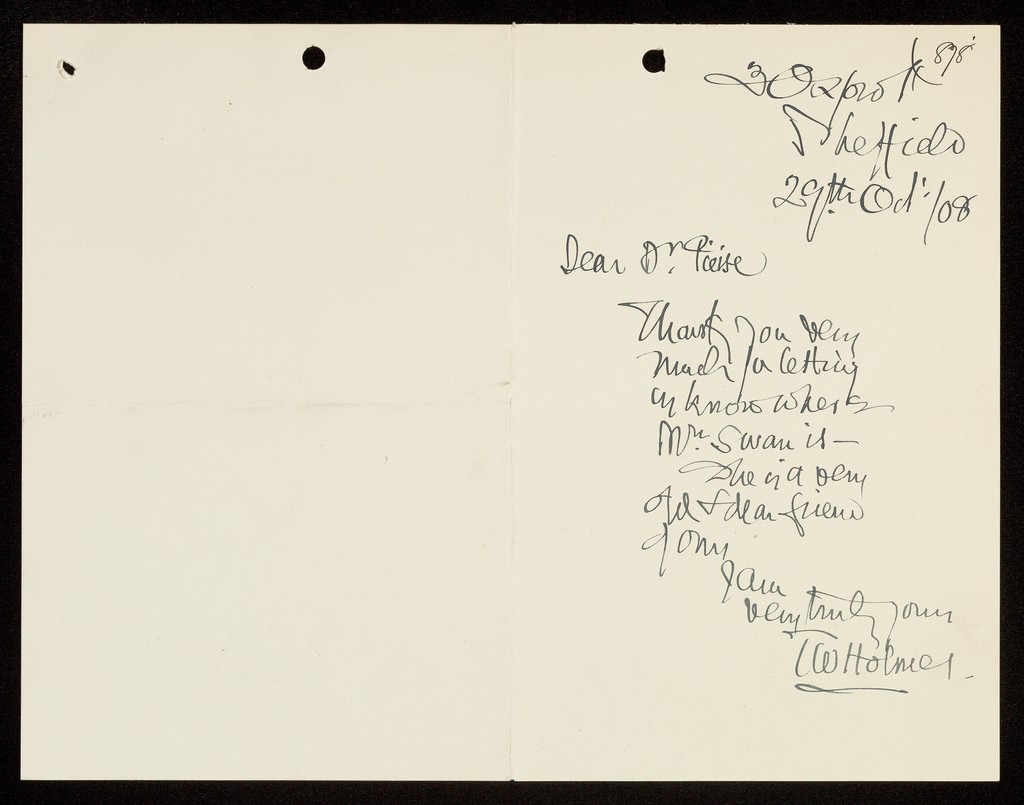 898
Sheffield
29th Oct. /08
Dear Dr.
Thank you very
much for letting
us know where
Mrs. Swan is —
She is a very
old & dear friend
of ours
I am
very truly yours
TW Holmes.